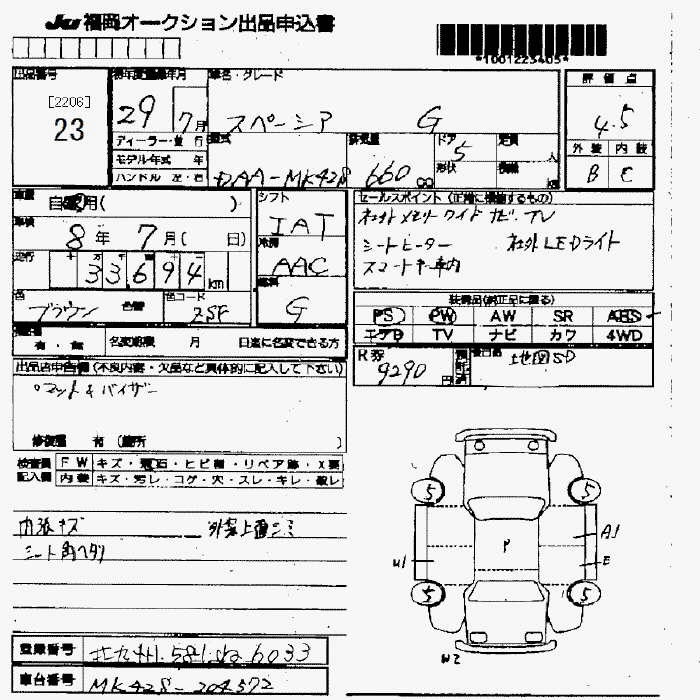 JU 福岡オークション出品申込書
*1001223405*
出品番号
[2206]
23
初年度登録年月
29 7月
ディーラー・並 行
モデル年式 年
ハンドル 左・右
車名・グレード
スペーシア G
型式 排気量 ドア 定員
DAA-MK42S 660 cc 5 人
形状 積載 kg
評価点
4.5
外装 内装
B C
車歴
自家用( )
車検
8年 7月( 日)
走行
33,694 km
色
ブラウン 色替
色コード
ZSF
シフト
IAT
冷房
AAC
燃料
G
セールスポイント (正確に横書するもの)
社外メモリーワイドナビ TV
シートヒーター 社外LEDライト
スマートキー車内
装備品(純正品に限る)
PS PW AW SR ABS
エアB TV ナビ カワ 4WD
有・無 名変期限 月 日迄に名変できる方
R券
9290円
後日品
地図SD
出品店申告欄 (不良内容・欠品など具体的に記入して下さい)
○マット&バイザー
修復歴 有 (箇所 )
検査員 記入欄
FW キズ・飛石・ヒビ・リペア跡・X要
内装 キズ・汚レ・コゲ・穴・スレ・キレ・破レ
内張キズ 外装上面シミ
シート角ヘタリ
5 5
A1
P
U1 E
5 5
W2
登録番号
車台番号 MK42S-204572